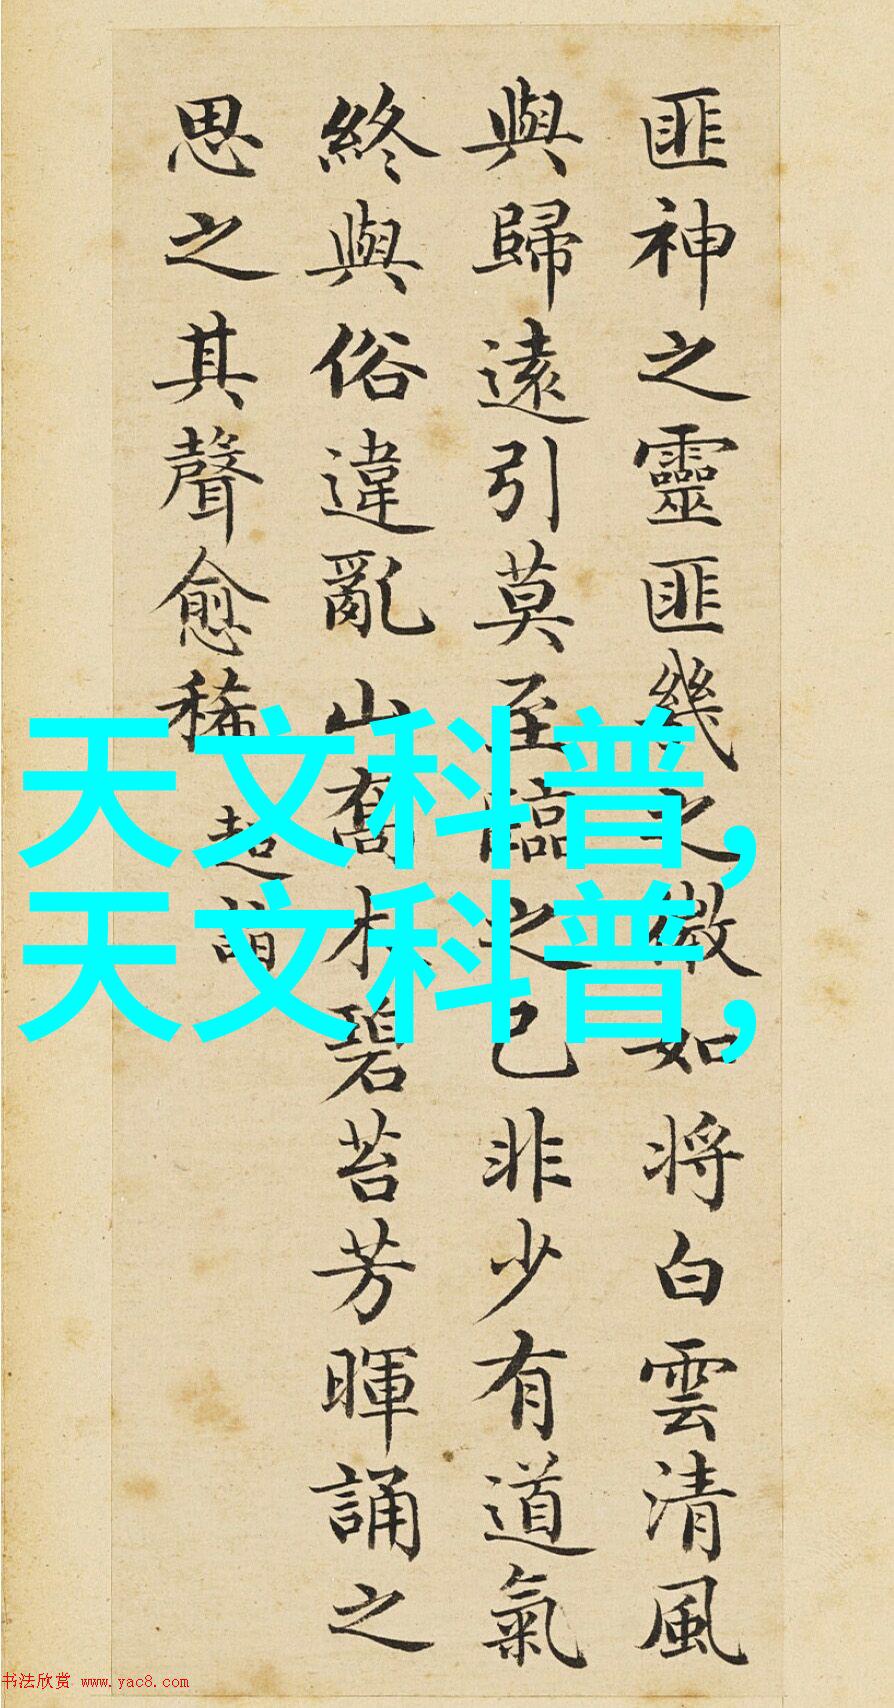 匪神之靈匪幾之微如将白雲清風
與歸遠引莫至臨之已非少有道氣
終與俗違亂山喬木碧苔芳暉誦之
思之其聲愈稀 超詣
天文科普,
天文科普,
书法欣赏 www.yac8.com